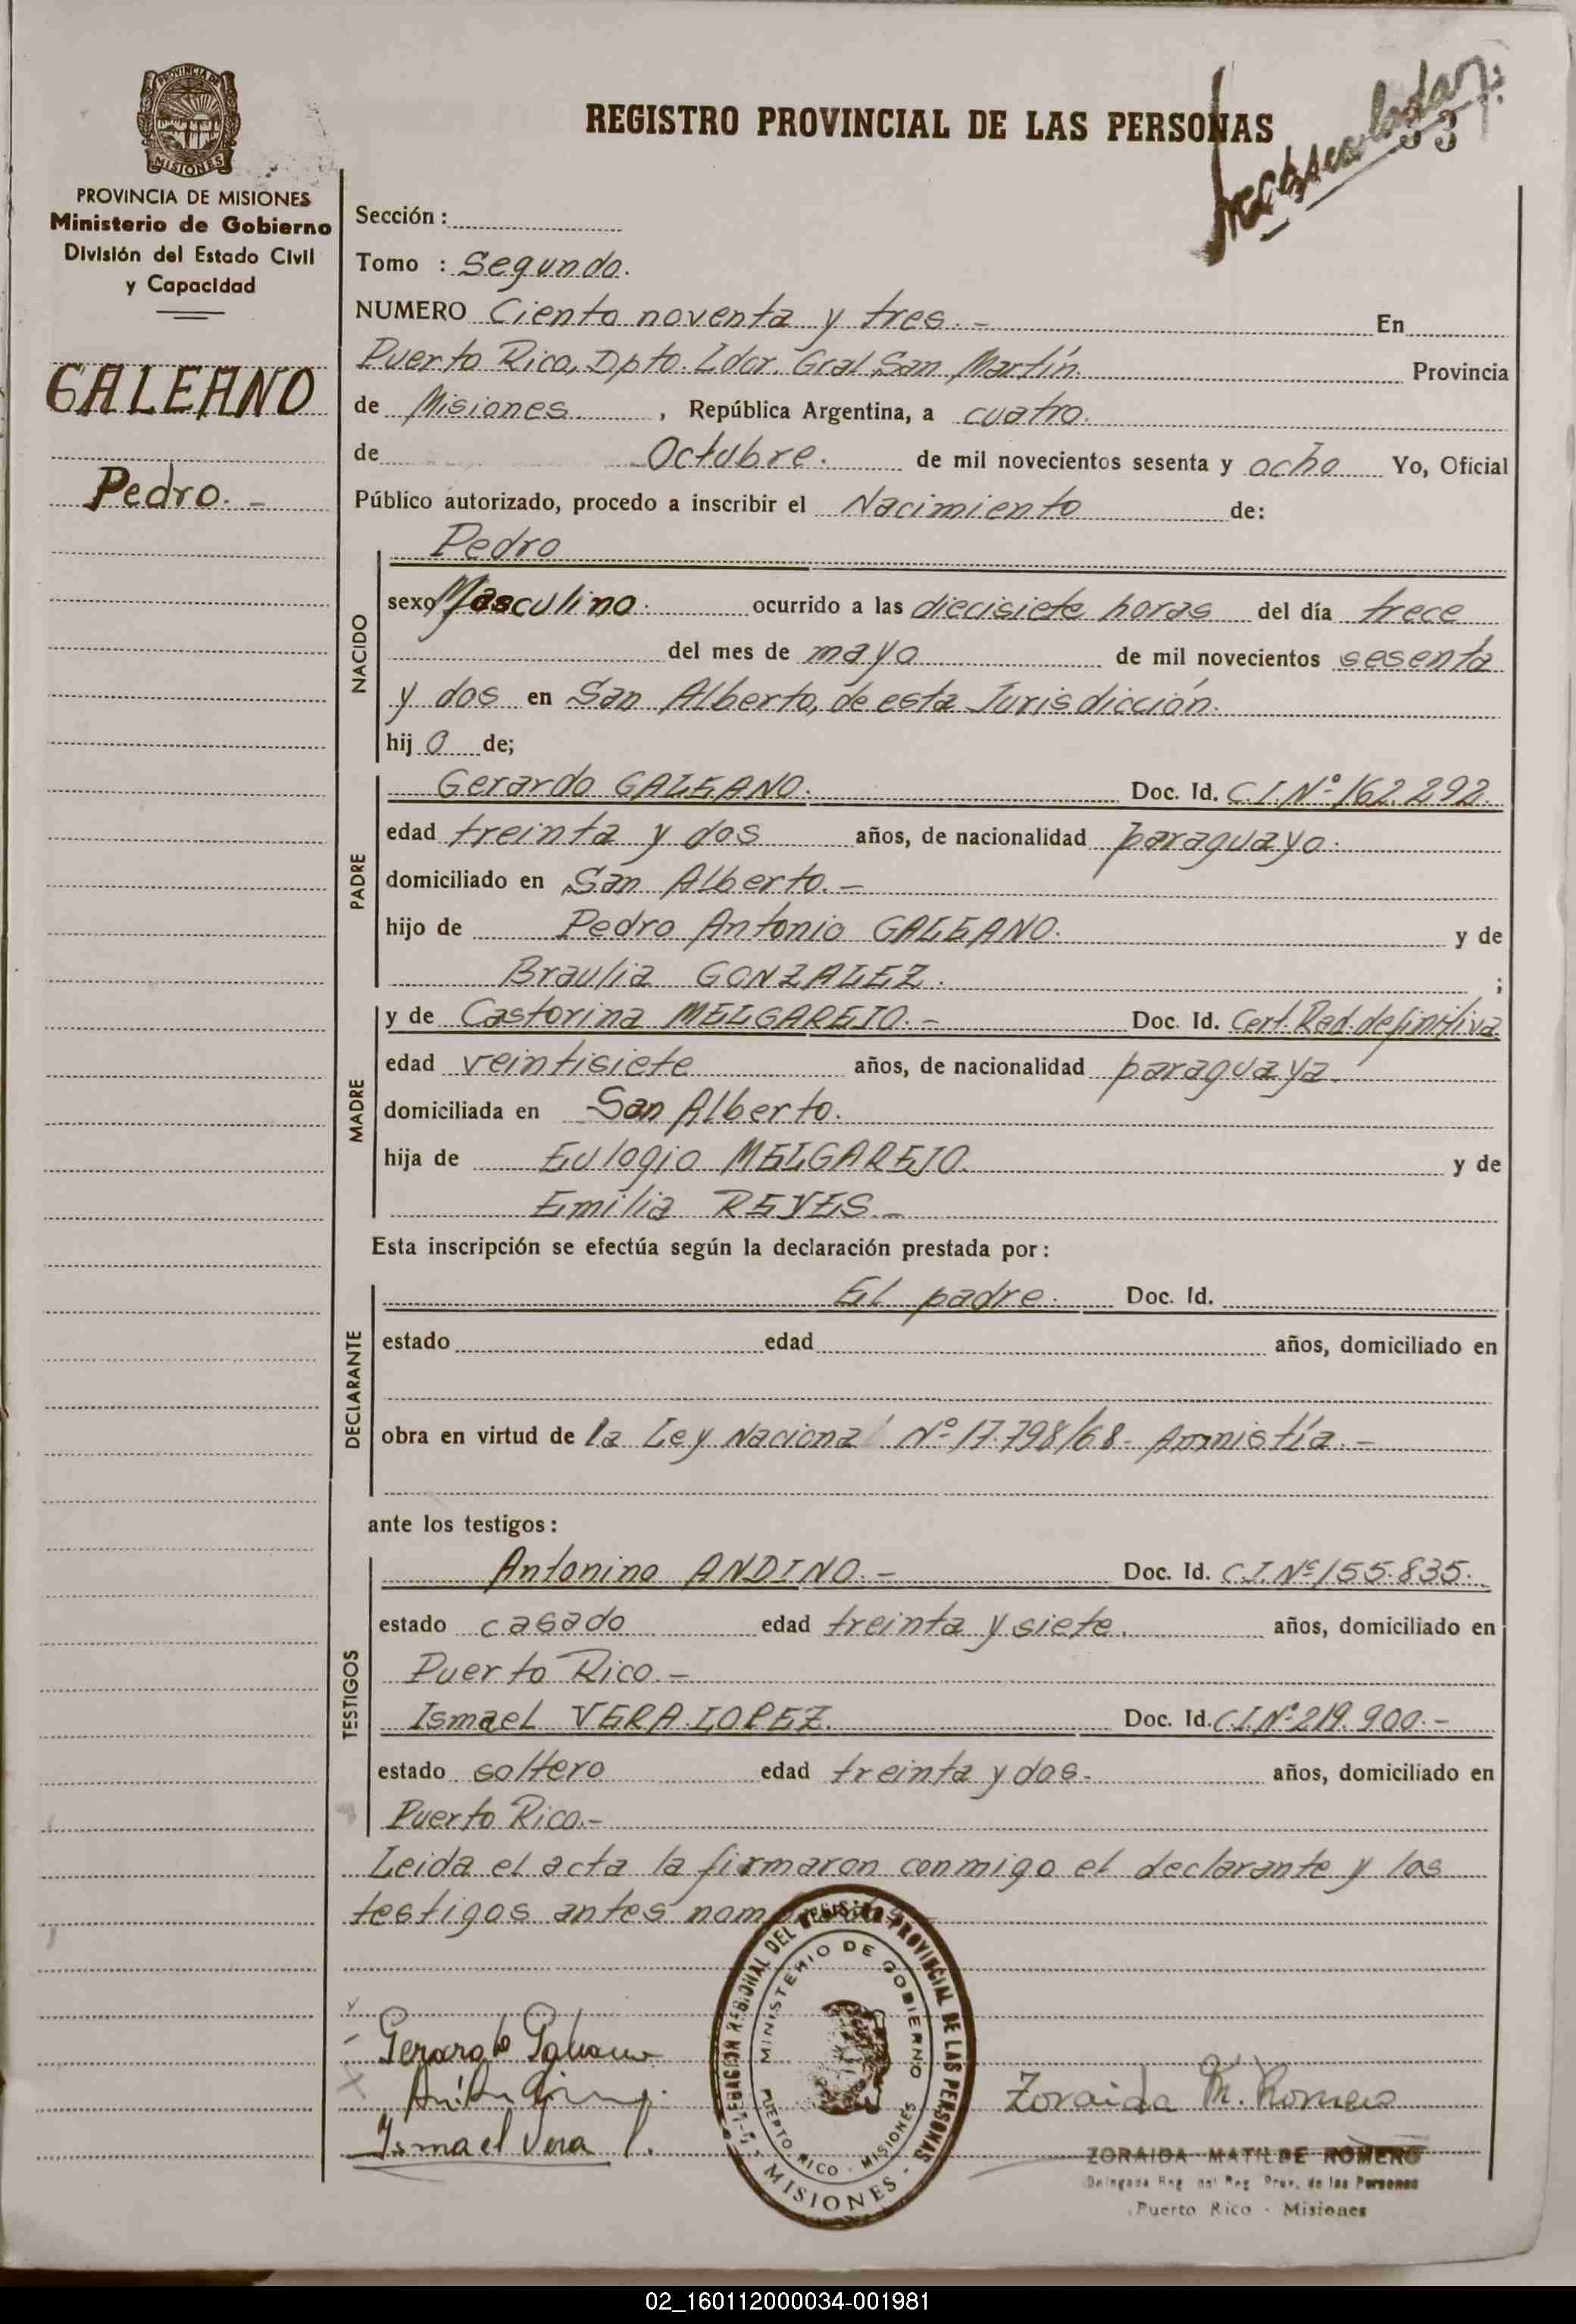 REGISTRO PROVINCIAL DE LAS PERSONAS
33
PROVINCIA DE MISIONES
PROVINCIA DE MISIONES
Ministerio de Gobierno
División del Estado Civil
y Capacidad
GALEANO
Pedro. -
Sección :
Tomo : Segundo.
NUMERO Ciento noventa y tres. - En
Puerto Rico, Dpto. Ldor. Gral San Martín. Provincia
de Misiones , República Argentina, a cuatro.
de Octubre. de mil novecientos sesenta y ocho Yo, Oficial
Público autorizado, procedo a inscribir el Nacimiento de:
NACIDO
Pedro
sexo Masculino. ocurrido a las diecisiete horas del día trece
del mes de mayo de mil novecientos sesenta
y dos en San Alberto, de esta Jurisdicción.
hij o de;
PADRE
Gerardo GALEANO. Doc. Id. C.I.Nº 162.292.
edad treinta y dos años, de nacionalidad paraguayo.
domiciliado en San Alberto. -
hijo de Pedro Antonio GALEANO. y de
Braulia GONZALEZ. ;
MADRE
y de Castorina MELGAREJO. - Doc. Id. Cert. Rad. definitiva
edad veintisiete años, de nacionalidad paraguaya.
domiciliada en San Alberto.
hija de Eulogio MELGAREJO. y de
Emilia REYES. -
Esta inscripción se efectúa según la declaración prestada por :
DECLARANTE
El padre. Doc. Id.
estado edad años, domiciliado en
obra en virtud de la Ley Nacional Nº 17.798/68- Amnistía. -
ante los testigos :
TESTIGOS
Antonino ANDINO. - Doc. Id. C.I.Nº 155.835.
estado casado edad treinta y siete. años, domiciliado en
Puerto Rico. -
Ismael VERA LOPEZ. Doc. Id. C.I.Nº 219.900.-
estado soltero edad treinta y dos. años, domiciliado en
Puerto Rico.-
Leida el acta la firmaron conmigo el declarante y los
testigos antes
DELEGACION REGIONAL DEL REGISTRO PROVINCIAL DE LAS PERSONAS
MINISTERIO DE GOBIERNO
PUERTO RICO - MISIONES
MISIONES
Gerardo Galeano
Ismael Vera L.
Zoraida M. Romero
ZORAIDA MATILDE ROMERO
Delegada Reg. del Reg. Prov. de las Personas
Puerto Rico - Misiones
02_160112000034-001981